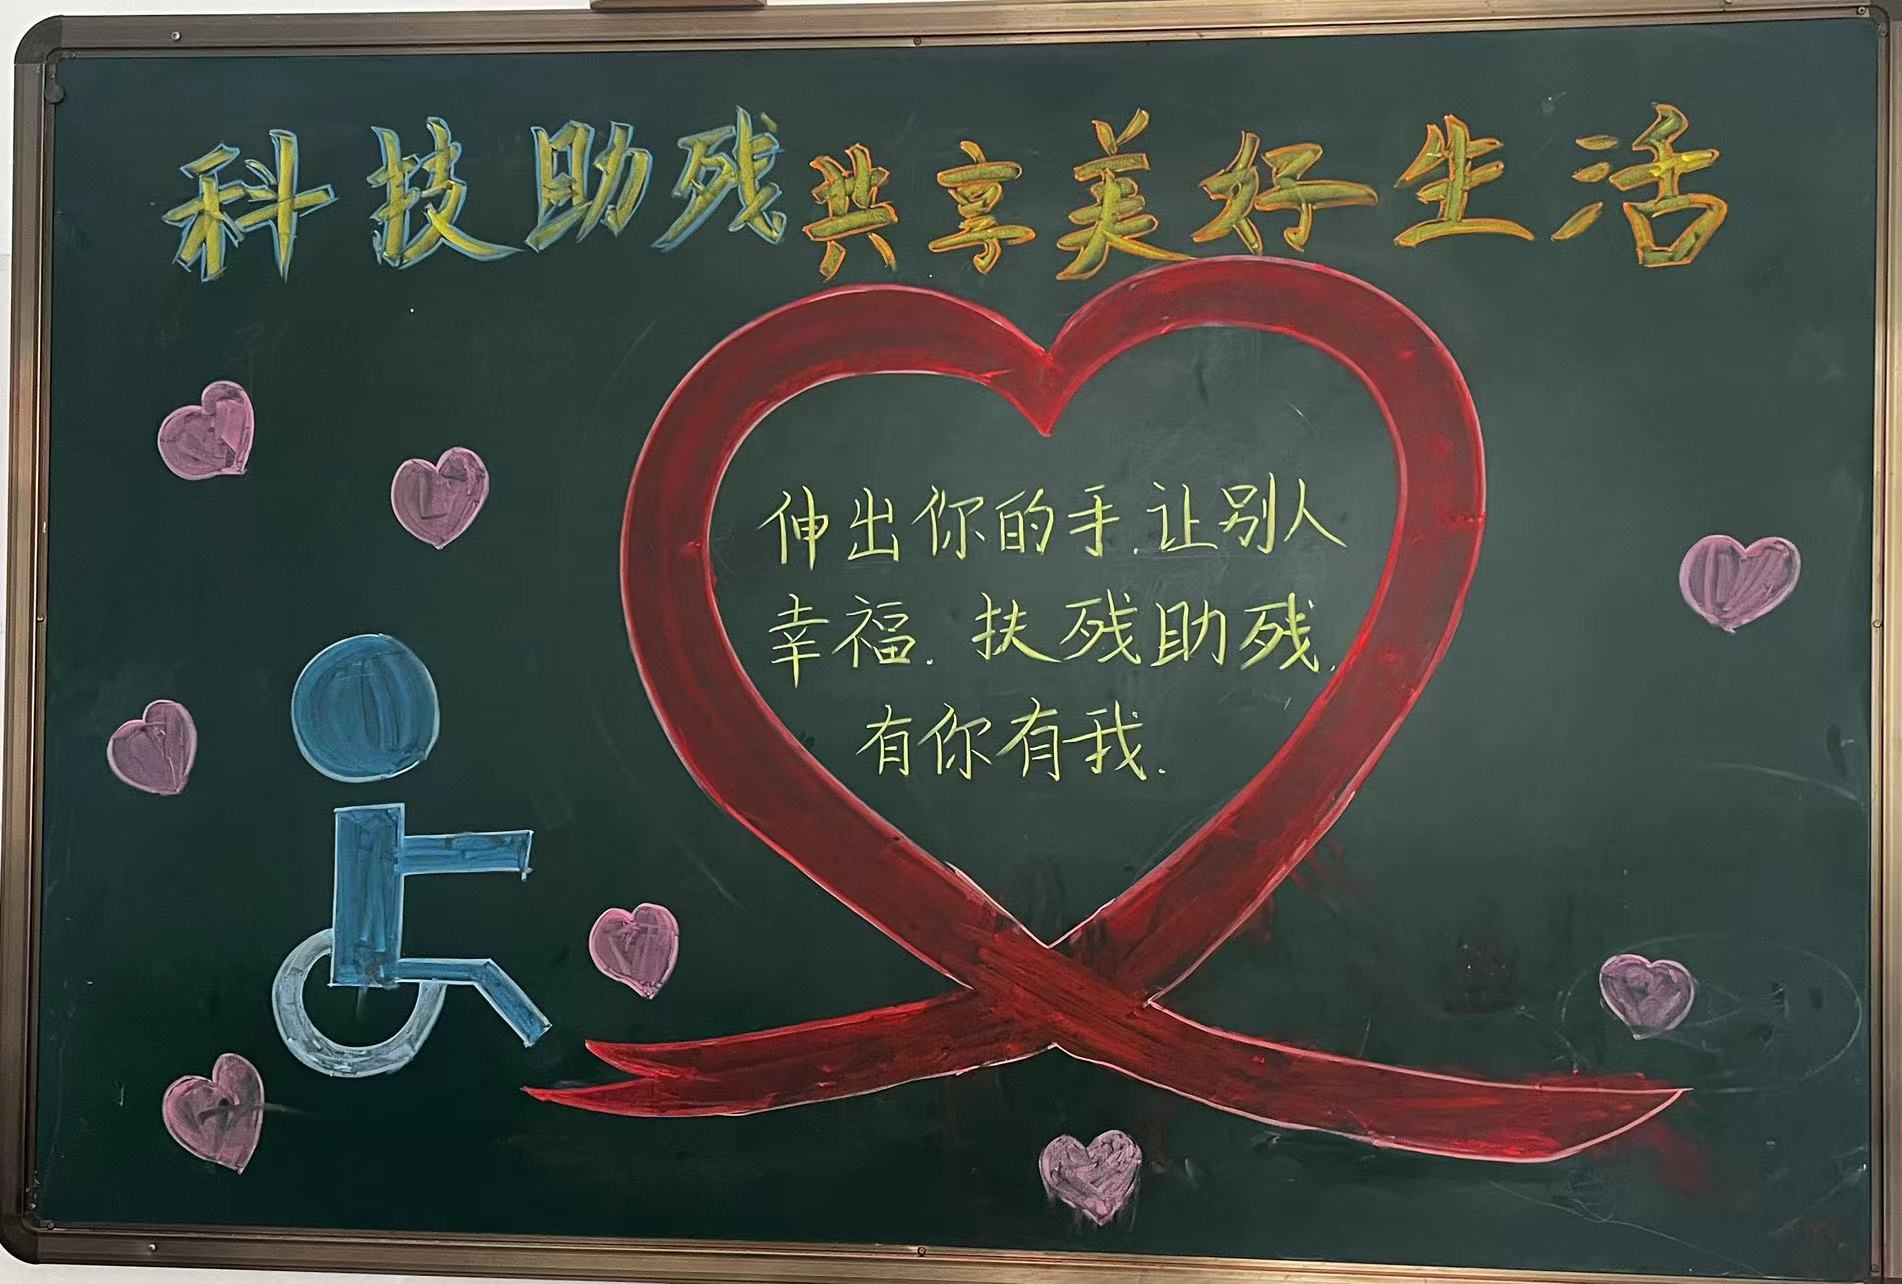 科技助残共享美好生活
伸出你的手.让别人
幸福.扶残助残.
有你有我.